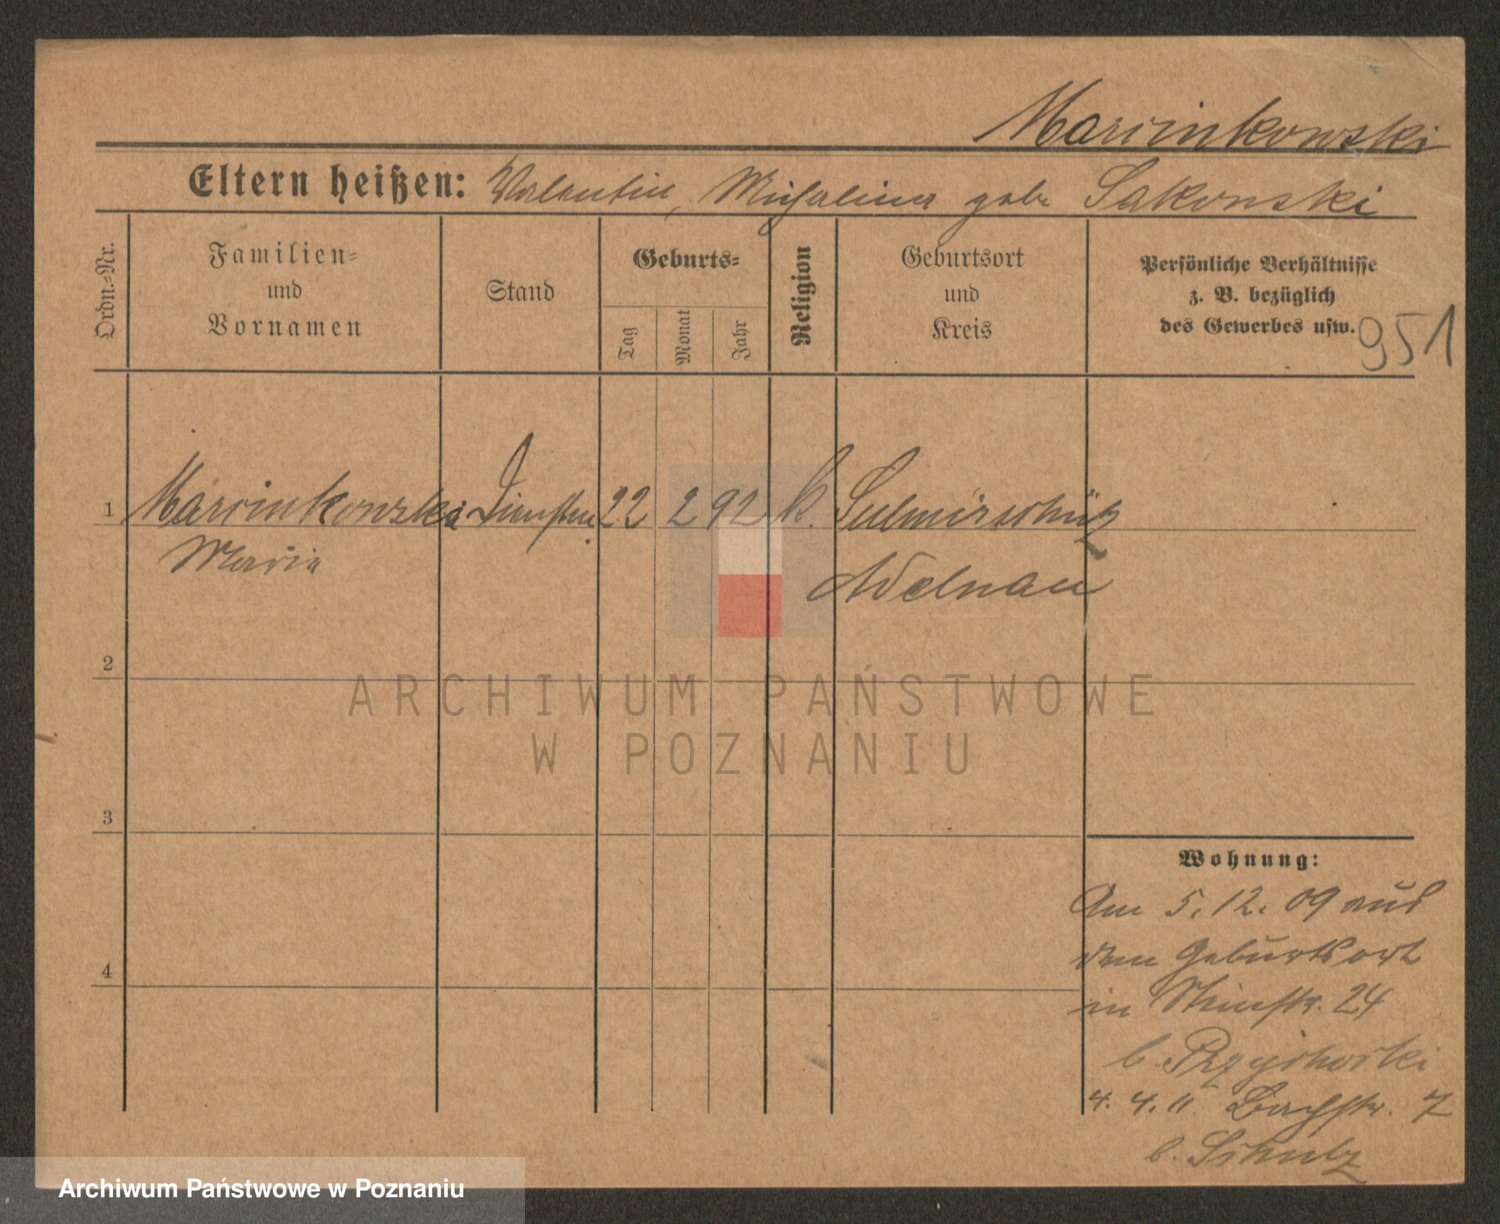 Marcinkowski
Eltern heißen: Valentin, Michalina geb. Sakowski
Ordn.-Nr.
Familien-
und
Vornamen
Stand
Geburts-
Tag
Monat
Jahr
Religion
Geburtsort
und
Kreis
Persönliche Verhältnisse
z. B. bezüglich
des Gewerbes usw.
951
1 Marcinkowska Dienstm. 22 2 92 k. Sulmirschütz
Marie Adelnau
2
3
4
Wohnung:
Am 5.12.09 aus
dem Geburtsort
in Steinstr. 24
b.
4.4.11 Bachstr. 7
b. Schulz
ARCHIWUM PAŃSTWOWE
W POZNANIU
Archiwum Państwowe w Poznaniu